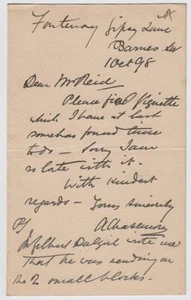 Fontenoy Gipsy Lane
Barnes SW
1 Oct 98
Dear Mr Reid
Please find vignette
which I have at last
somehow found time
to do - Sorry I am
so late with it.
With kindest
regards - Yours sincerely
A Chasemore
P/
Gilbert Dalziel wrote me
that he was sending on
the 2 small blocks.